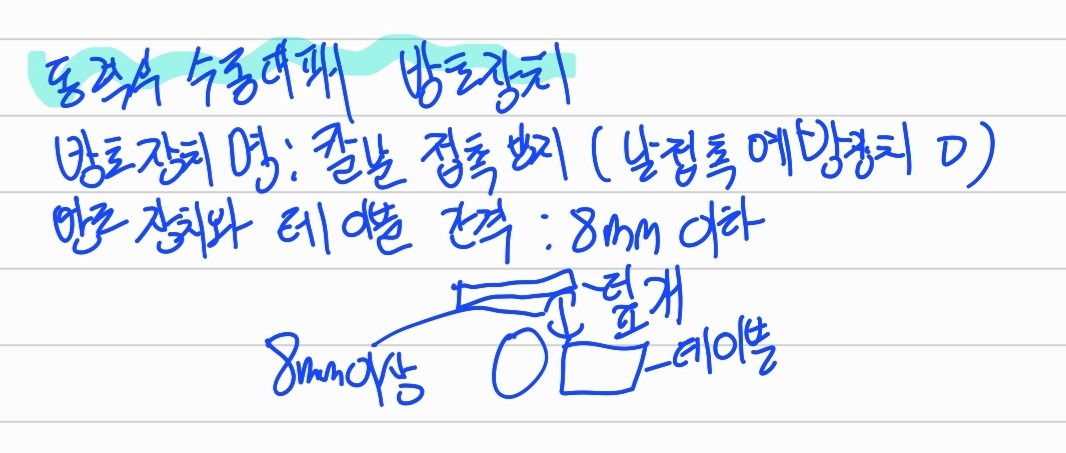 동력식 수동대패 방호장치
방호장치 명: 칼날 접촉 방지 (날접촉예방장치 O)
방호장치와 테이블 간격 : 8mm 이하
덮개
8mm이상
테이블